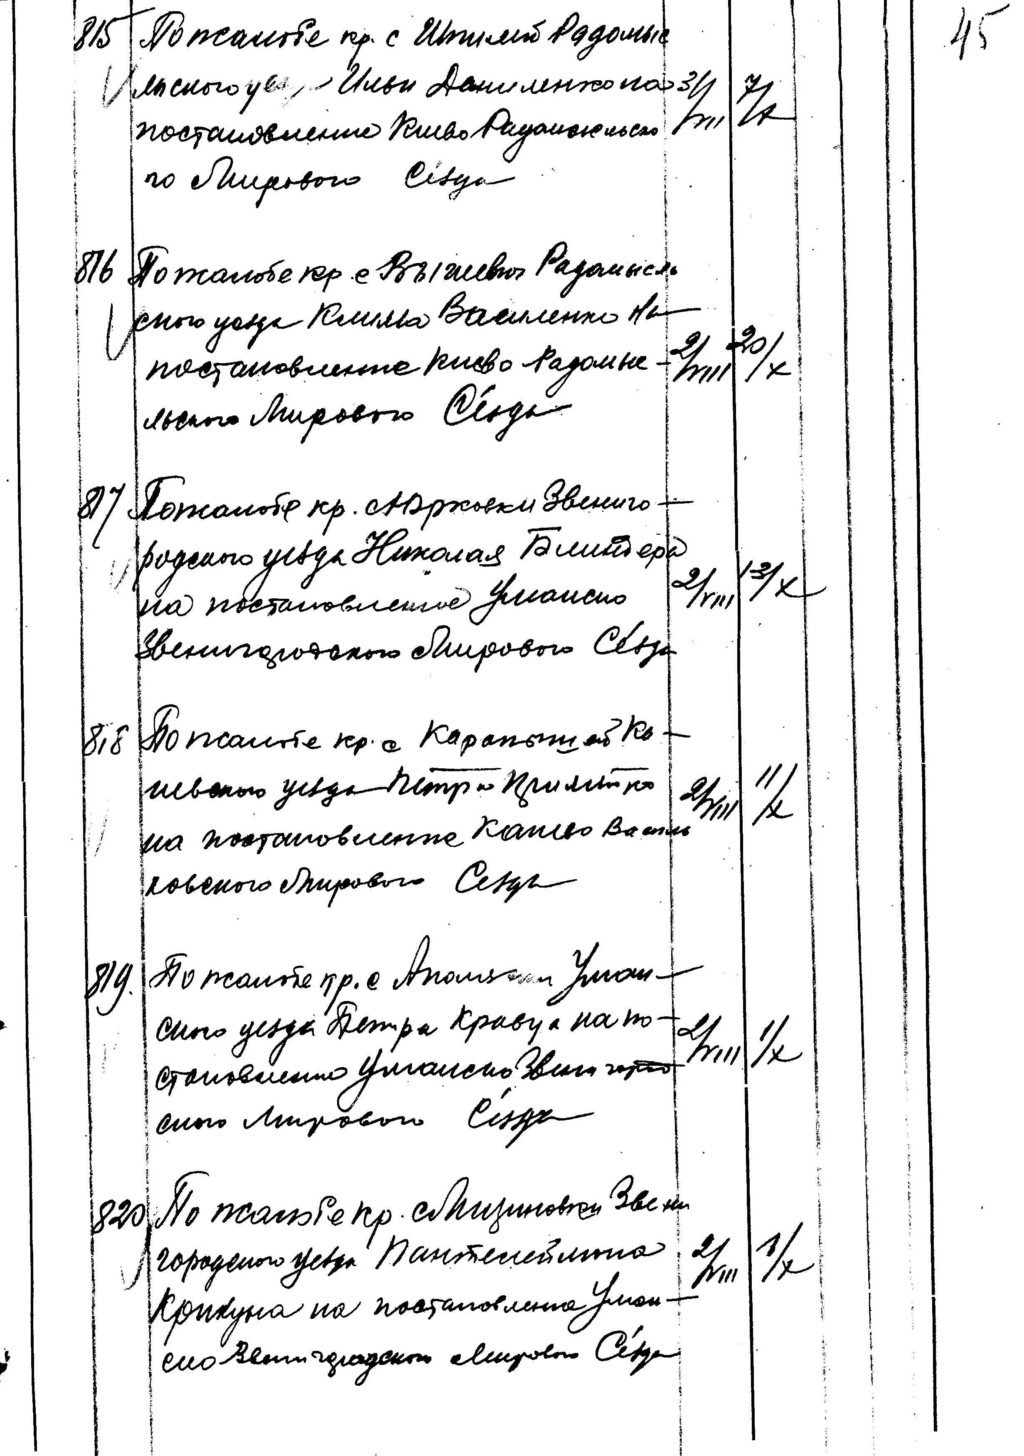 45
815 По жалобе кр. с Шпилей Радомыс
льского уез Ильи Даниленко на 31/VII 7/X
постановление Киево Радомысльско
го Мирового Сезда
816 По жалобе кр. с Вышевич Радомысль
ского уезда Клима Василенко На
постановление Киево Радомыс- 2/VIII 20/X
льского Мирового Сезда
817 По жалобе кр. с Юрковки Звениго-
родского уезда Николая Блиндера
на постановление Уманско 2/VIII 13/X
Звенигородского Мирового Сезда
818 По жалобе кр. с Карапышей Ка-
невского уезда Петра
на постановление Канево Василь 2/VIII 11/X
ковского Мирового Сезда
819. По жалобе кр. с Уман-
ского уезда Петра Кравца на по-
становление Уманско Звенигород 2/VIII 1/X
ского Мирового Сезда
820 По жалобе кр. с Мизиновки Звени
городского уезда Пантелеймона 2/VIII 1/X
Крикуна на постановление Уман-
ско Звенигородского Мирового Сезда